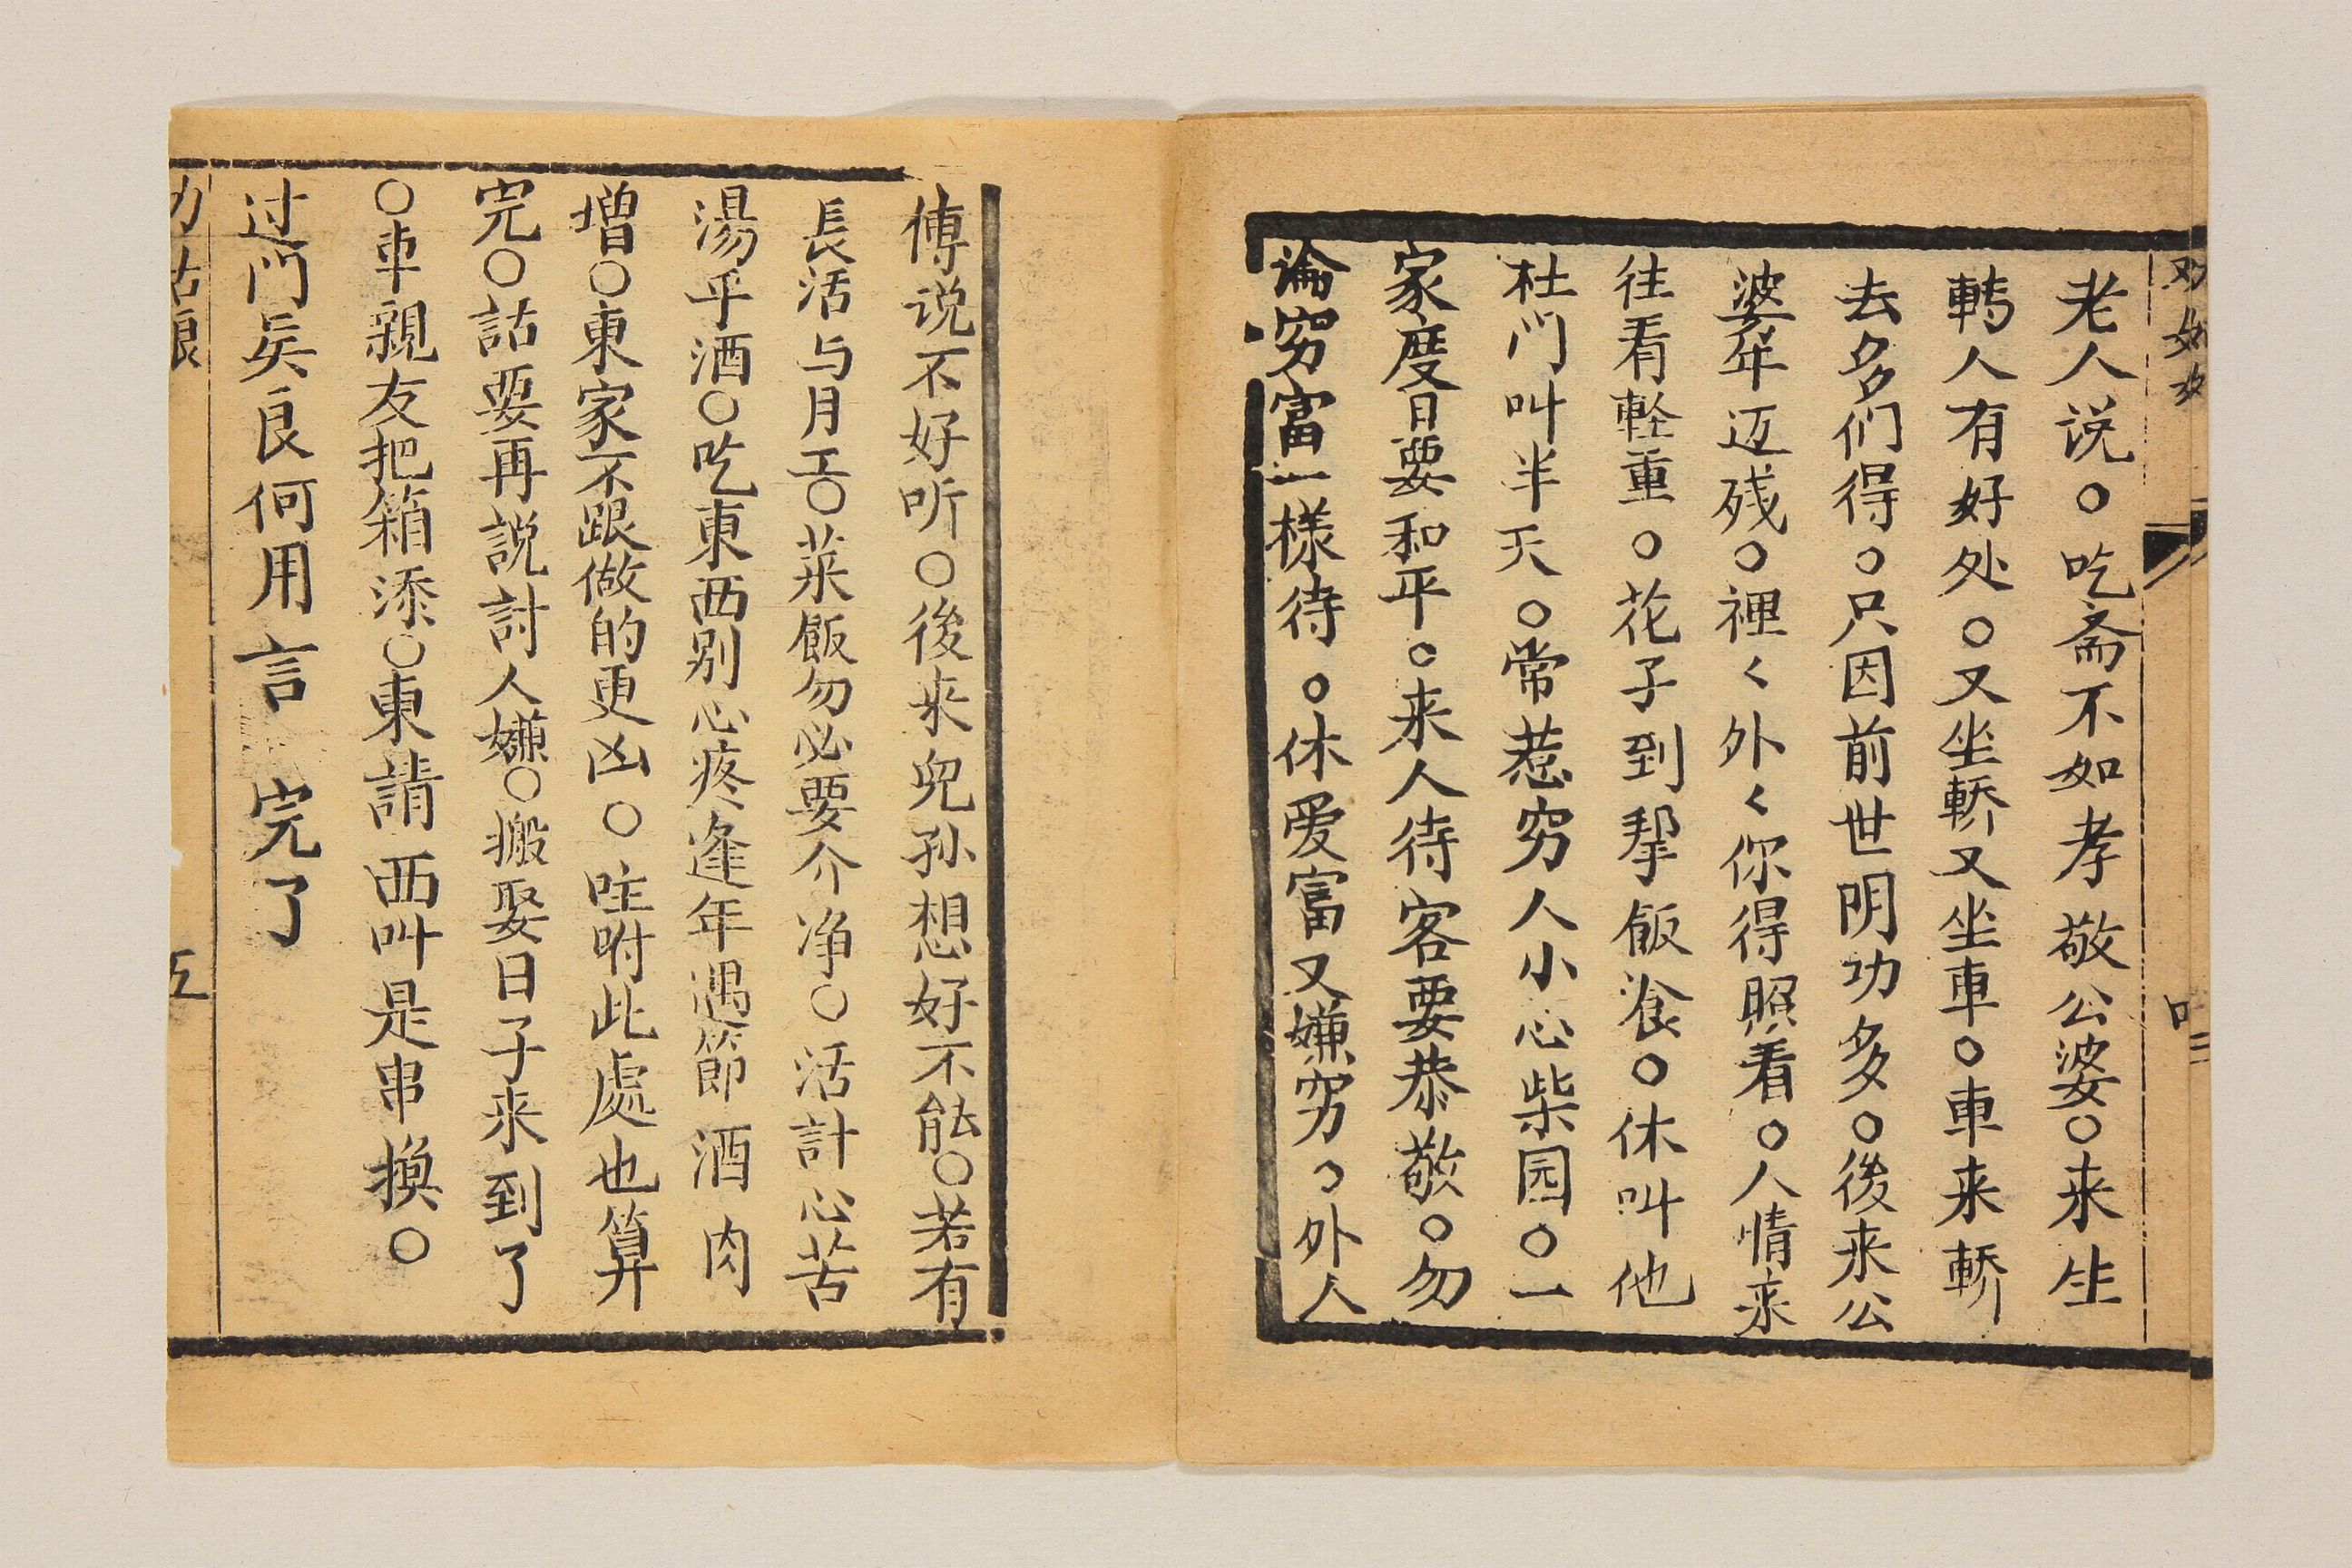 老人说○吃斋不如孝敬公婆○来生
轉人有好处○又坐轎又坐車○車来轎
去多们得○只因前世阴功多○後来公
婆年迈残○裡〱外〱你得照看○人情来
往看軽重○花子到拏飯飡○休叫他
杜门叫半天○常惹穷人小心柴园○一
家度日要和平○来人待客要恭敬○勿
論穷富一様待○休爱富又嫌穷○外人
傅说不好听○後来兒孙想好不能○若有
長活与月工○菜飯勿必要介净○活計心苦
湯乎酒○吃東西别心疼逢年遇節酒肉
增○東家不跟做的更凶○咗咐此處也算
完○詁要再説討人嫌○搬娶日子来到了
○車親友把箱添○東請西叫是串換○
过门矣良何用言 完了
五